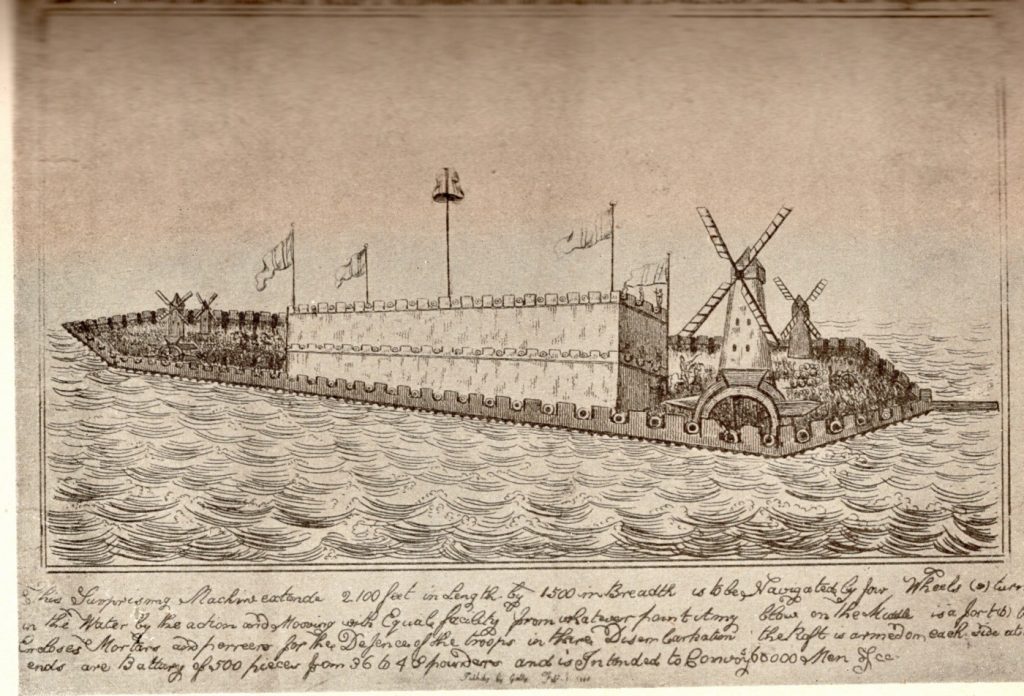 This Surprising Machine extends 2100 feet in Length by 1500 in Breadth is to be Navigated by four Wheels (a) turn
in the Water by the action and Mooving with Equale facility from whatever point it my blow on the Middle is a fort (b)
Encloses Mortars and perreers for the Defence of the troops in there Disembarkation the Raft is armed on each Side at
ends are Battary of 500 pieces from 36 to 48 pounders and is Intended to Convoy 60000 Men &cc
Publish'd by